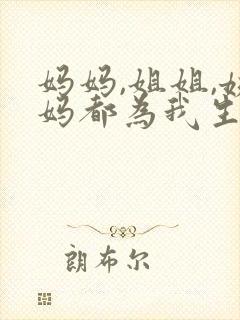 妈妈,姐姐,
妈都為我生
朗布尔